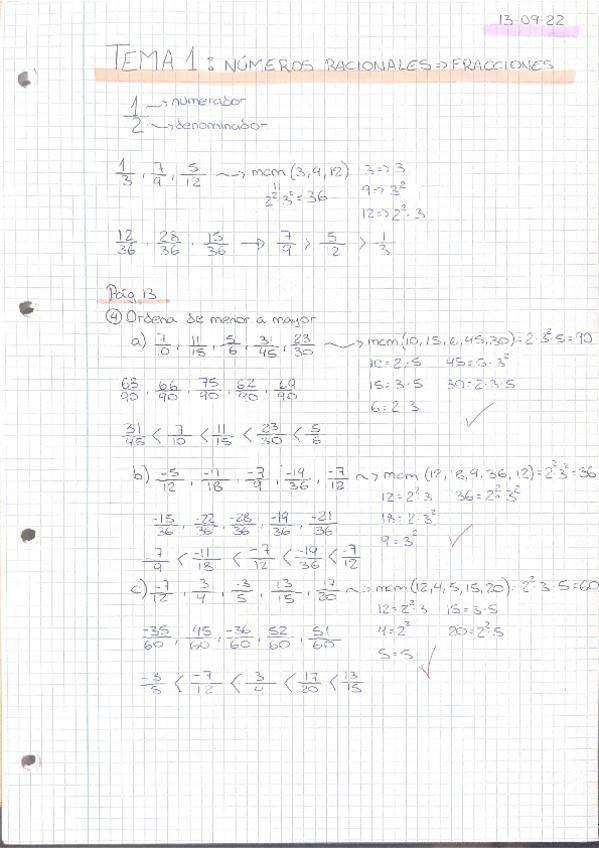 13-09-22
TEMA 1: NÚMEROS RACIONALES => FRACCIONES
1/2 → numerador
→ denominador
1/3, 7/9, 5/12 → mcm (3, 9, 12) 3 => 3
2²·3² = 36 9 => 3²
12 => 2²·3
12/36, 28/36, 15/36 → 7/9 > 5/12 > 1/3
Pág. 13
④ Ordena de menor a mayor
a) 7/10, 11/15, 5/6, 31/45, 23/30 → mcm (10, 15, 6, 45, 30) = 2·3²·5 = 90
10 = 2·5 45 = 5·3²
63/90, 66/90, 75/90, 62/90, 69/90 15 = 3·5 30 = 2·3·5
6 = 2·3
31/45 < 7/10 < 11/15 < 23/30 < 5/6
b) -5/12, -11/18, -7/9, -19/36, -7/12 → mcm (12, 18, 9, 36, 12) = 2²·3² = 36
12 = 2²·3 36 = 2²·3²
-15/36, -22/36, -28/36, -19/36, -21/36 18 = 2·3²
9 = 3²
-7/9 < -11/18 < -7/12 < -19/36 < -7/12
c) -7/12, 3/4, -3/5, 13/15, 17/20 → mcm (12, 4, 5, 15, 20) = 2²·3·5 = 60
12 = 2²·3 15 = 3·5
-35/60, 45/60, -36/60, 52/60, 51/60 4 = 2² 20 = 2²·5
5 = 5
-3/5 < -7/12 < 3/4 < 17/20 < 13/15